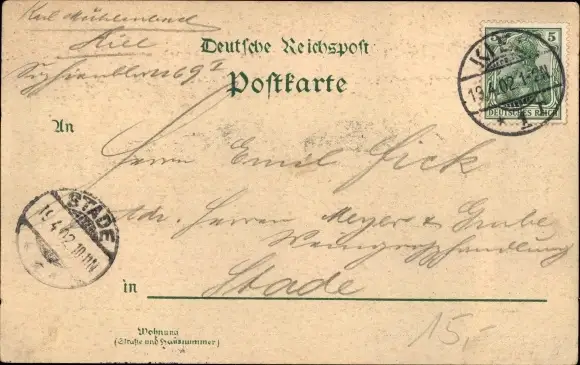 Karl Mühlenbeck
Kiel
69 I
Deutsche Reichspost
Postkarte
5
DEUTSCHES REICH
KIEL
19.4.02.1-2N
* 1
An
Herrn Emil Fick
Adr. Herren Meyer & Grube,
Weingroßhandlung
STADE
19.4.02.10-11N
in Stade
Wohnung
(Straße und Hausnummer)
15,-